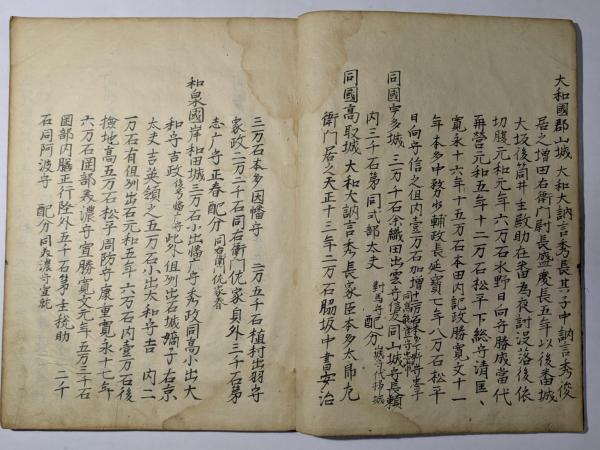 大和國郡山城 大和大訥言秀長其子中訥言秀俊
居之増田右衛門尉長盛慶長五年以後番城
大坂後筒井主殿助在番為夜討没落後依
切腹元和元年六万石水野日向守勝成當代
再營元和五年十二万石松平下総守清匡
寛永十六年十五万石本田内記政勝寛文十一
年本多中務少輔政長延寶七年八万石松平
日向守信之但内壱万石加増
同國宇多城 三万千石余織田出雲守 同山城守長頼
内三千石弟同式部太夫 對馬守 配分
同國高取城 大和大訥言秀長家臣本多太郎九
衛門居之天正十三年二万石脇坂中書安治
三万石本多因幡守 二万五千石植村出羽守
家政二万二千石同右衛門佐家貞外三千石弟
志广守正春配分 同右衛門佐家春
和泉國岸和田城 三万石小出播广守秀政同高小出大
和守吉政後号播广守此外但列出石城嫡子右京
太夫吉英領之五万石小出大和守吉 内二
一万石有但列出石元和五年六万石内壹万石後
撿地高五万石松平周防守康重寛永十七年
六万石岡部美濃守宣勝寛文元年五万三千石
岡部内膳正行隆外五千石弟主税助 二千
石同阿波守 配分同美濃守宣就